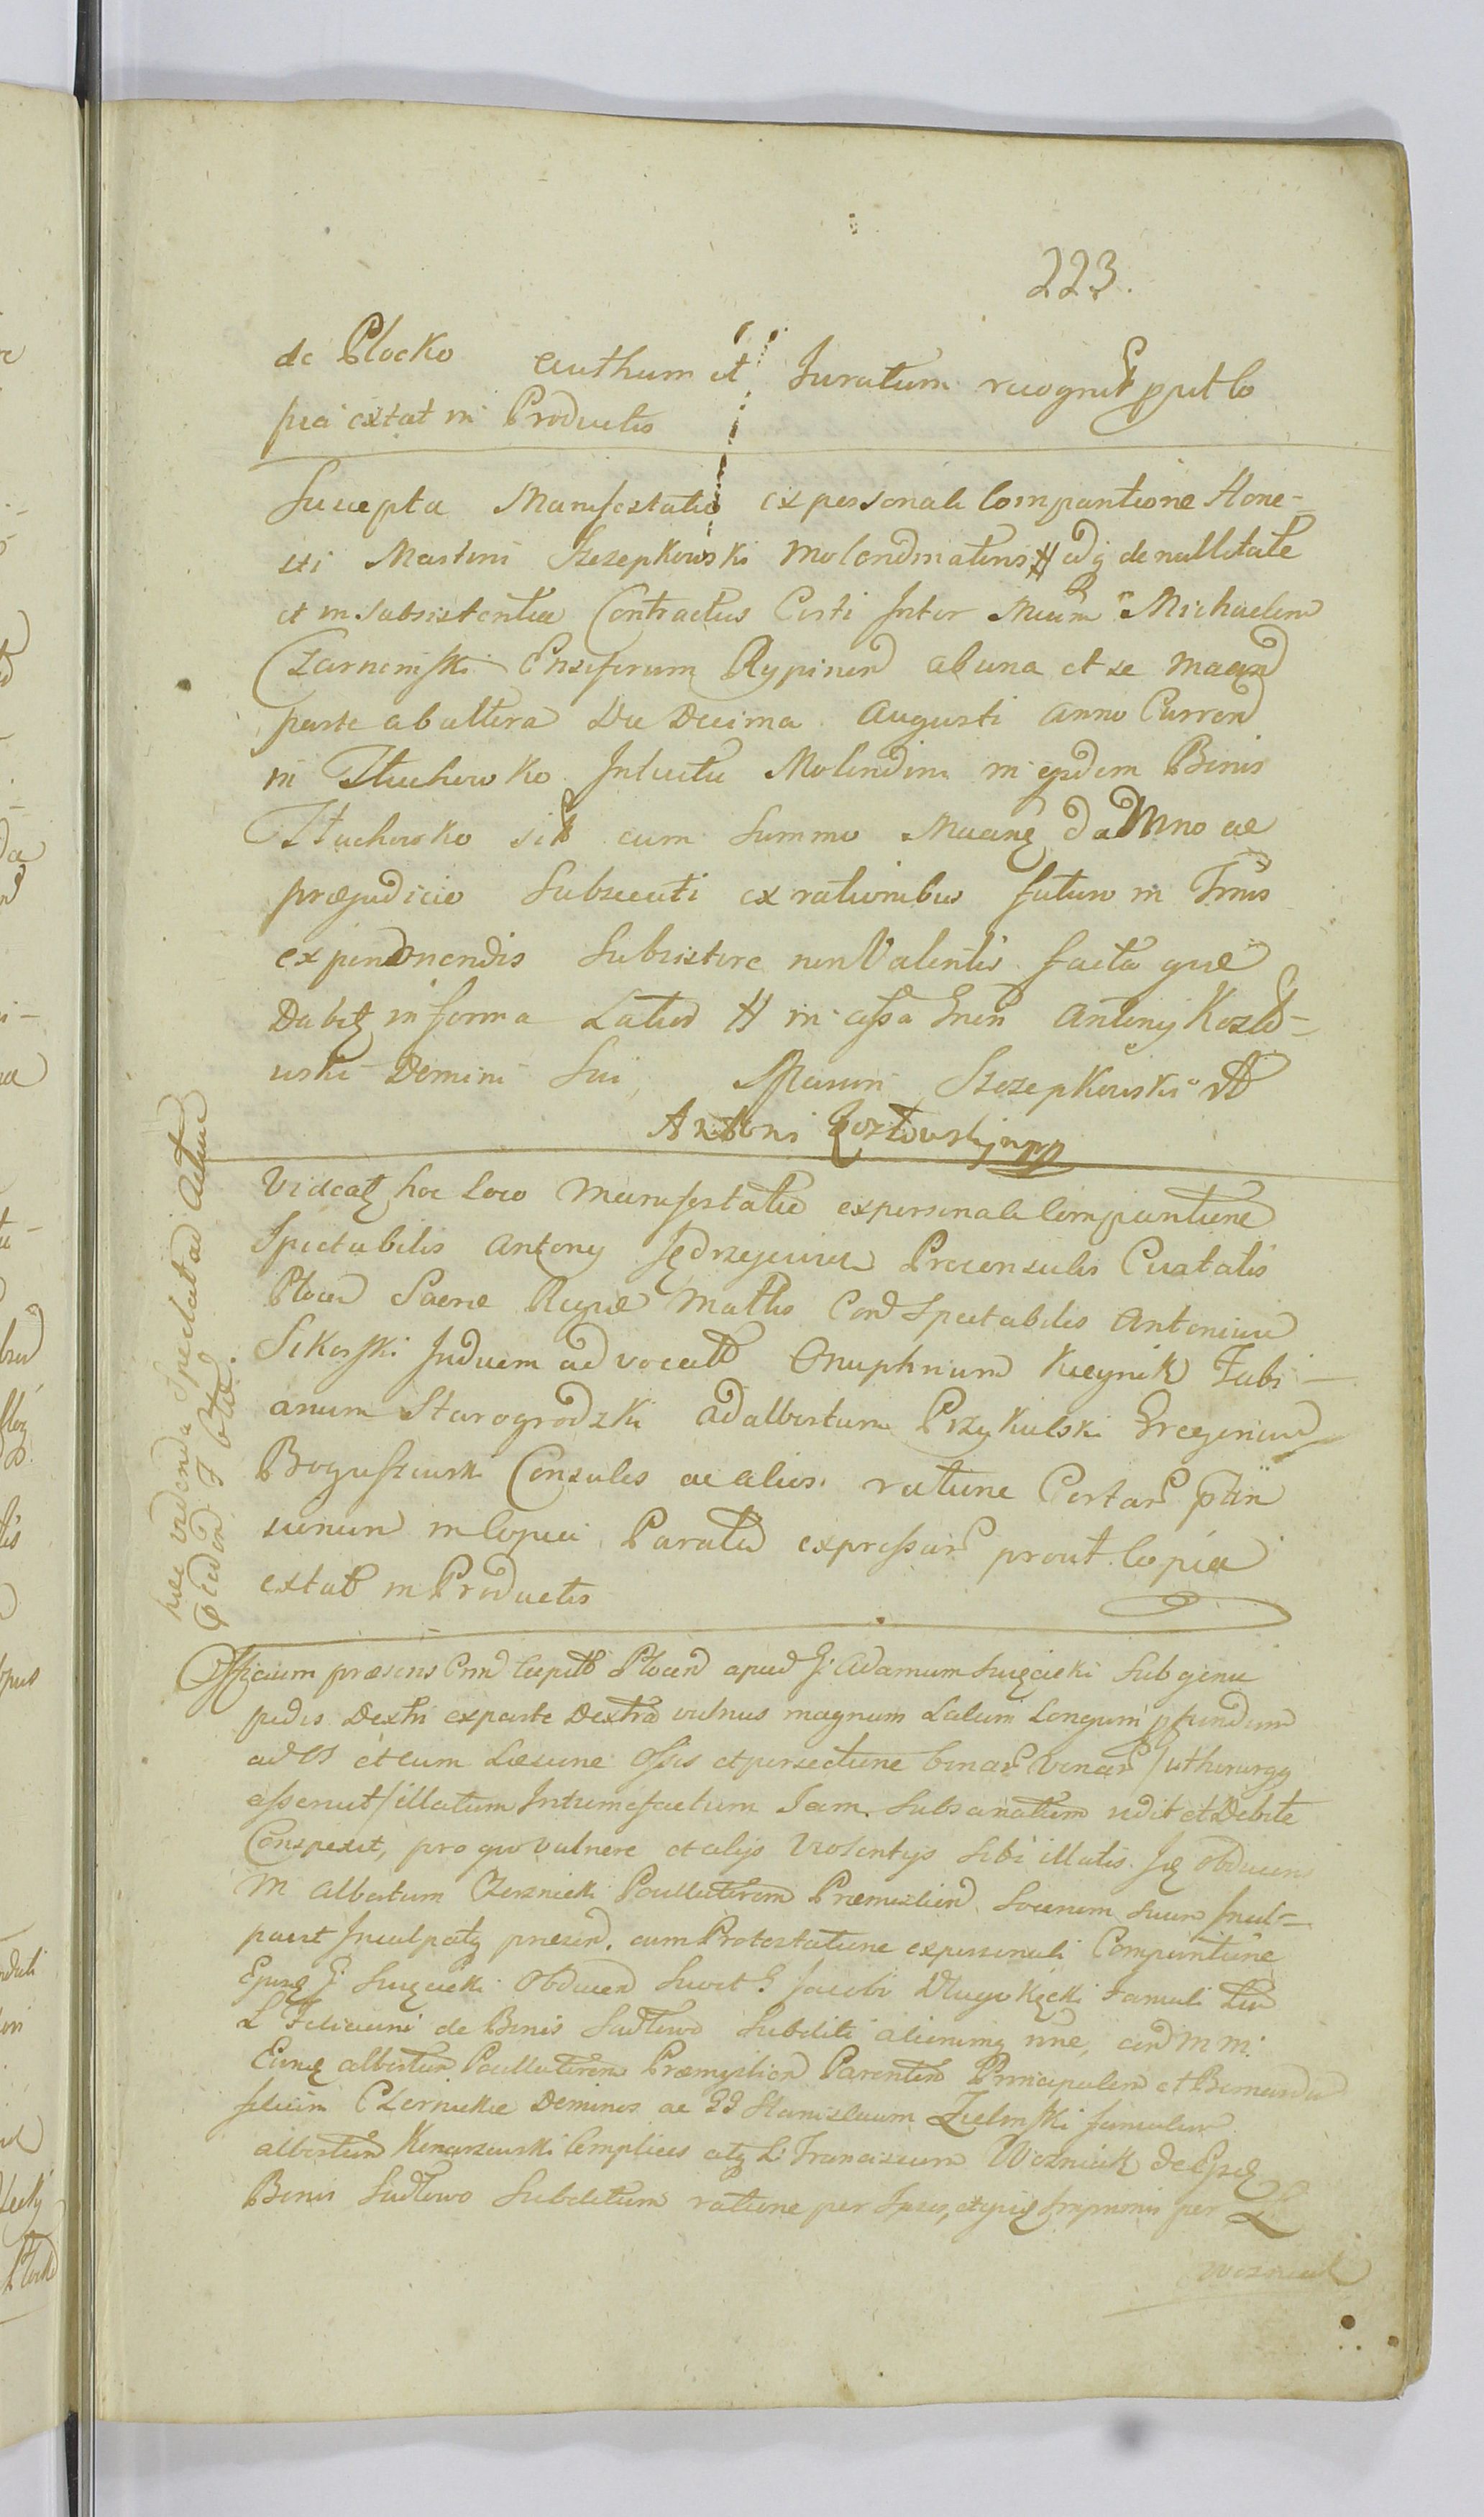 223.
de Plocko authum et Juratum recognit put Co
pia extat in Productis
Suscepta Manifestatio ex personali Comparitione Hone-
sti Martini Szczepkowski Molendinatoris # adq de nullitate
et in subsistentia Contractus Certi Inter Mcum Michaelem
Czarnomski Ensiferum Rypinen ab una et se Maan
parte ab altera Die Decima Augusti Anno Curren
in Tłuchowko Intuitu Molendini in ejsdem Bonis
Tłuchowko siti cum summo Maane Damno ac
præjudicio Subsecuti ex rationibus futuro in Tmis
exponendis Subsistere non Valentis facta quæ
Dabit in forma Latior # in assa Gnen Antonij Kozło-
wski Domini Sui Marcin Szczepkowski
Antoni Kozłowski mpp
Videat hoc Loco Manifestatio ex personali Comparitione
Spectabilis Antony Jędrzejewicz Proconsulis Civitatis
Plocen Sacræ Regiæ Mattis Con Spectabiles Antonium
Sikorski Juduem advocatt Onuphrium Kleynik Fabi-
anum Starogrodzki Adalbertum Przykulski Gregorium
Boguszewski Consules ac alios ratione Certar ptin
sionum in Copia Paratu expressar prout Copia
extat in Productis
hæc videnda Spectat ad Actum
Officium præsens Cnn Capitt Plocen apud G. Adamum Święcicki Sub genu
pedis Dextri ex parte Dextra vulnus magnum Latum Longum pfundum
ad Os et cum Læsione Ossis et persectione binar Venar /ut chirurgg
asseruit/ illatum Intumefactum Jam Subsanatum vidit et Debite
Conspexit, pro quo vulnere et alijs Violentijs Sibi illatis Ję obducens
M Albertum Czerznicki Pocillatorem Præmislien Socerum Suum Incul-
pavit Inculpatq præsen. cum Protestatione ex personali Comparitione
Ejusq G Święcicki Obducen Suo et G Jacobi Długokęcki Famuli
L Feliciani de Bonis Sudłowo Subditi nne, con M M.
Eunq Albertum Pocillatorem Præmyslien Parentem Principalem et Bernardu
filium Czernickie Dominos ac GG Stanislaum Zielinski famulum
Albertum Konarzewski Complices atq L. Franciscum Wozniak de Ejsdq
Bonis Sudłowo Subditum ratione per Ipsos, et quidq Impmonis per L
Wozniak